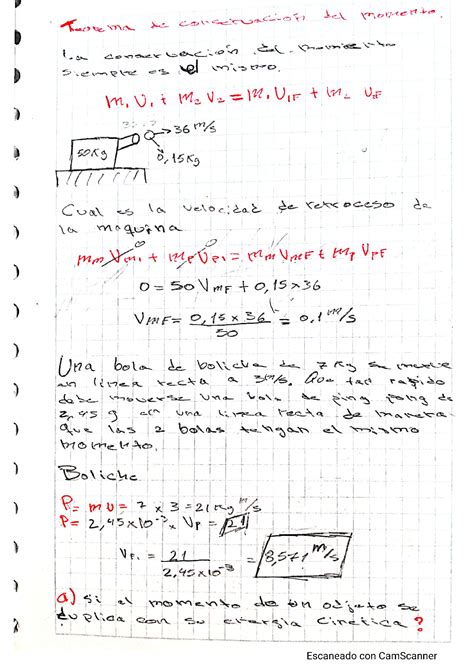 Teorema de conservación del momento.
La conservación del momento
siempre es el mismo.
m₁ U₁ + m₂ V₂ = m₁ U₁F + m₂ U₂F
36 m/s
50Kg
0,15Kg
Cual es la velocidad de retroceso de
la maquina
mm Vmi + mp Vpi = mm VmF + mp VPF
0 = 50 VmF + 0,15 x 36
VmF = 0,15 x 36 / 50 = 0,1 m/s
Una bola de boliche de 7 Kg se mueve
en linea recta a 3m/s. Que tan rapido
debe moverse una bola de ping pong de
2,45 g en una linea recta de manera
que las 2 bolas tengan el mismo
momento.
Boliche
P = m U = 7 x 3 = 21 Kg m/s
P = 2,45x10⁻³ x Vp = 21
VP. = 21 / 2,45x10⁻³ = 8,571 m/s
a) Si el momento de un objeto se
duplica con su energia cinetica ?
Escaneado con CamScanner